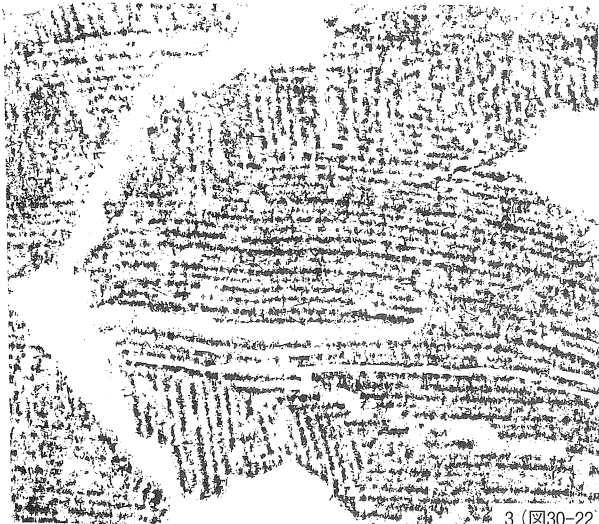 3 (図30-22